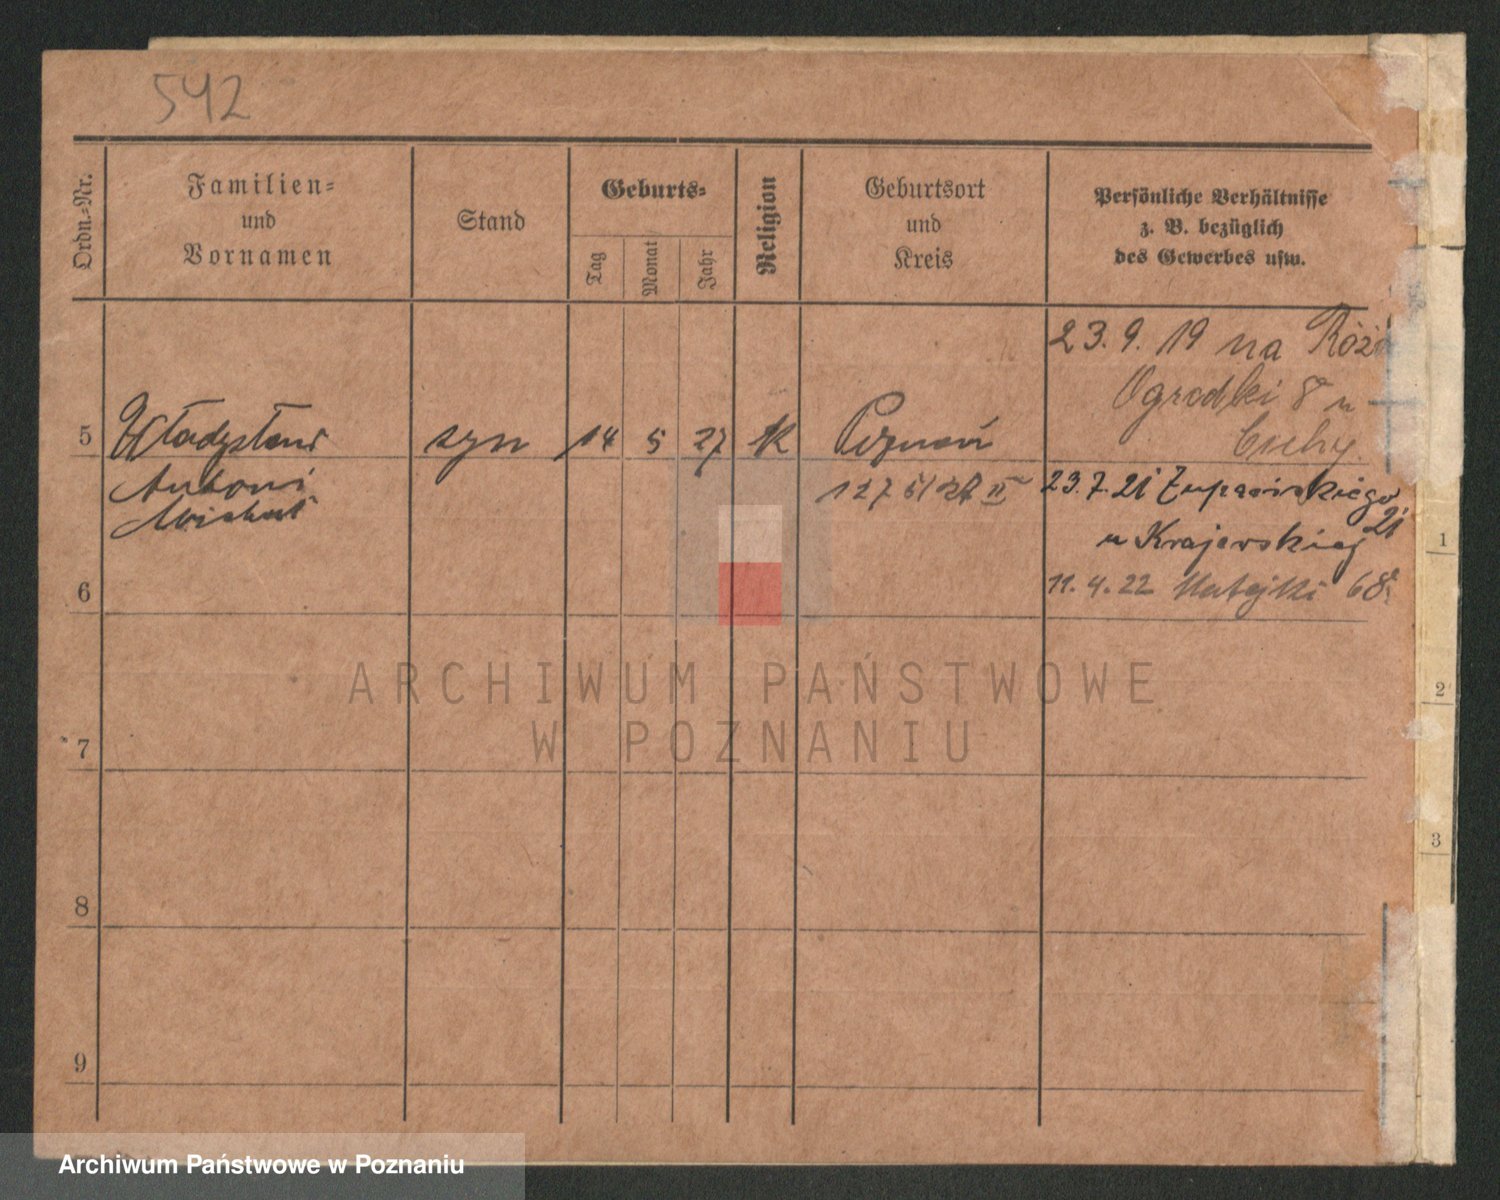 542
Ordn.=Nr.
Familien=
und
Vornamen
Stand
Geburts=
Tag
Monat
Jahr
Religion
Geburtsort
und
Kreis
Persönliche Verhältnisse
z. B. bezüglich
des Gewerbes usw.
23. 9. 19 na
Ogrodki 8 u
Cichy.
5 Władysław syn 14 5 27 k Poznań
Antoni
Michał
23.7.21 Żupańskiego 21
u Krajewskiej
11. 4. 22 Matejki 68
6
7
8
9
1
2
3
ARCHIWUM PAŃSTWOWE
W POZNANIU
Archiwum Państwowe w Poznaniu